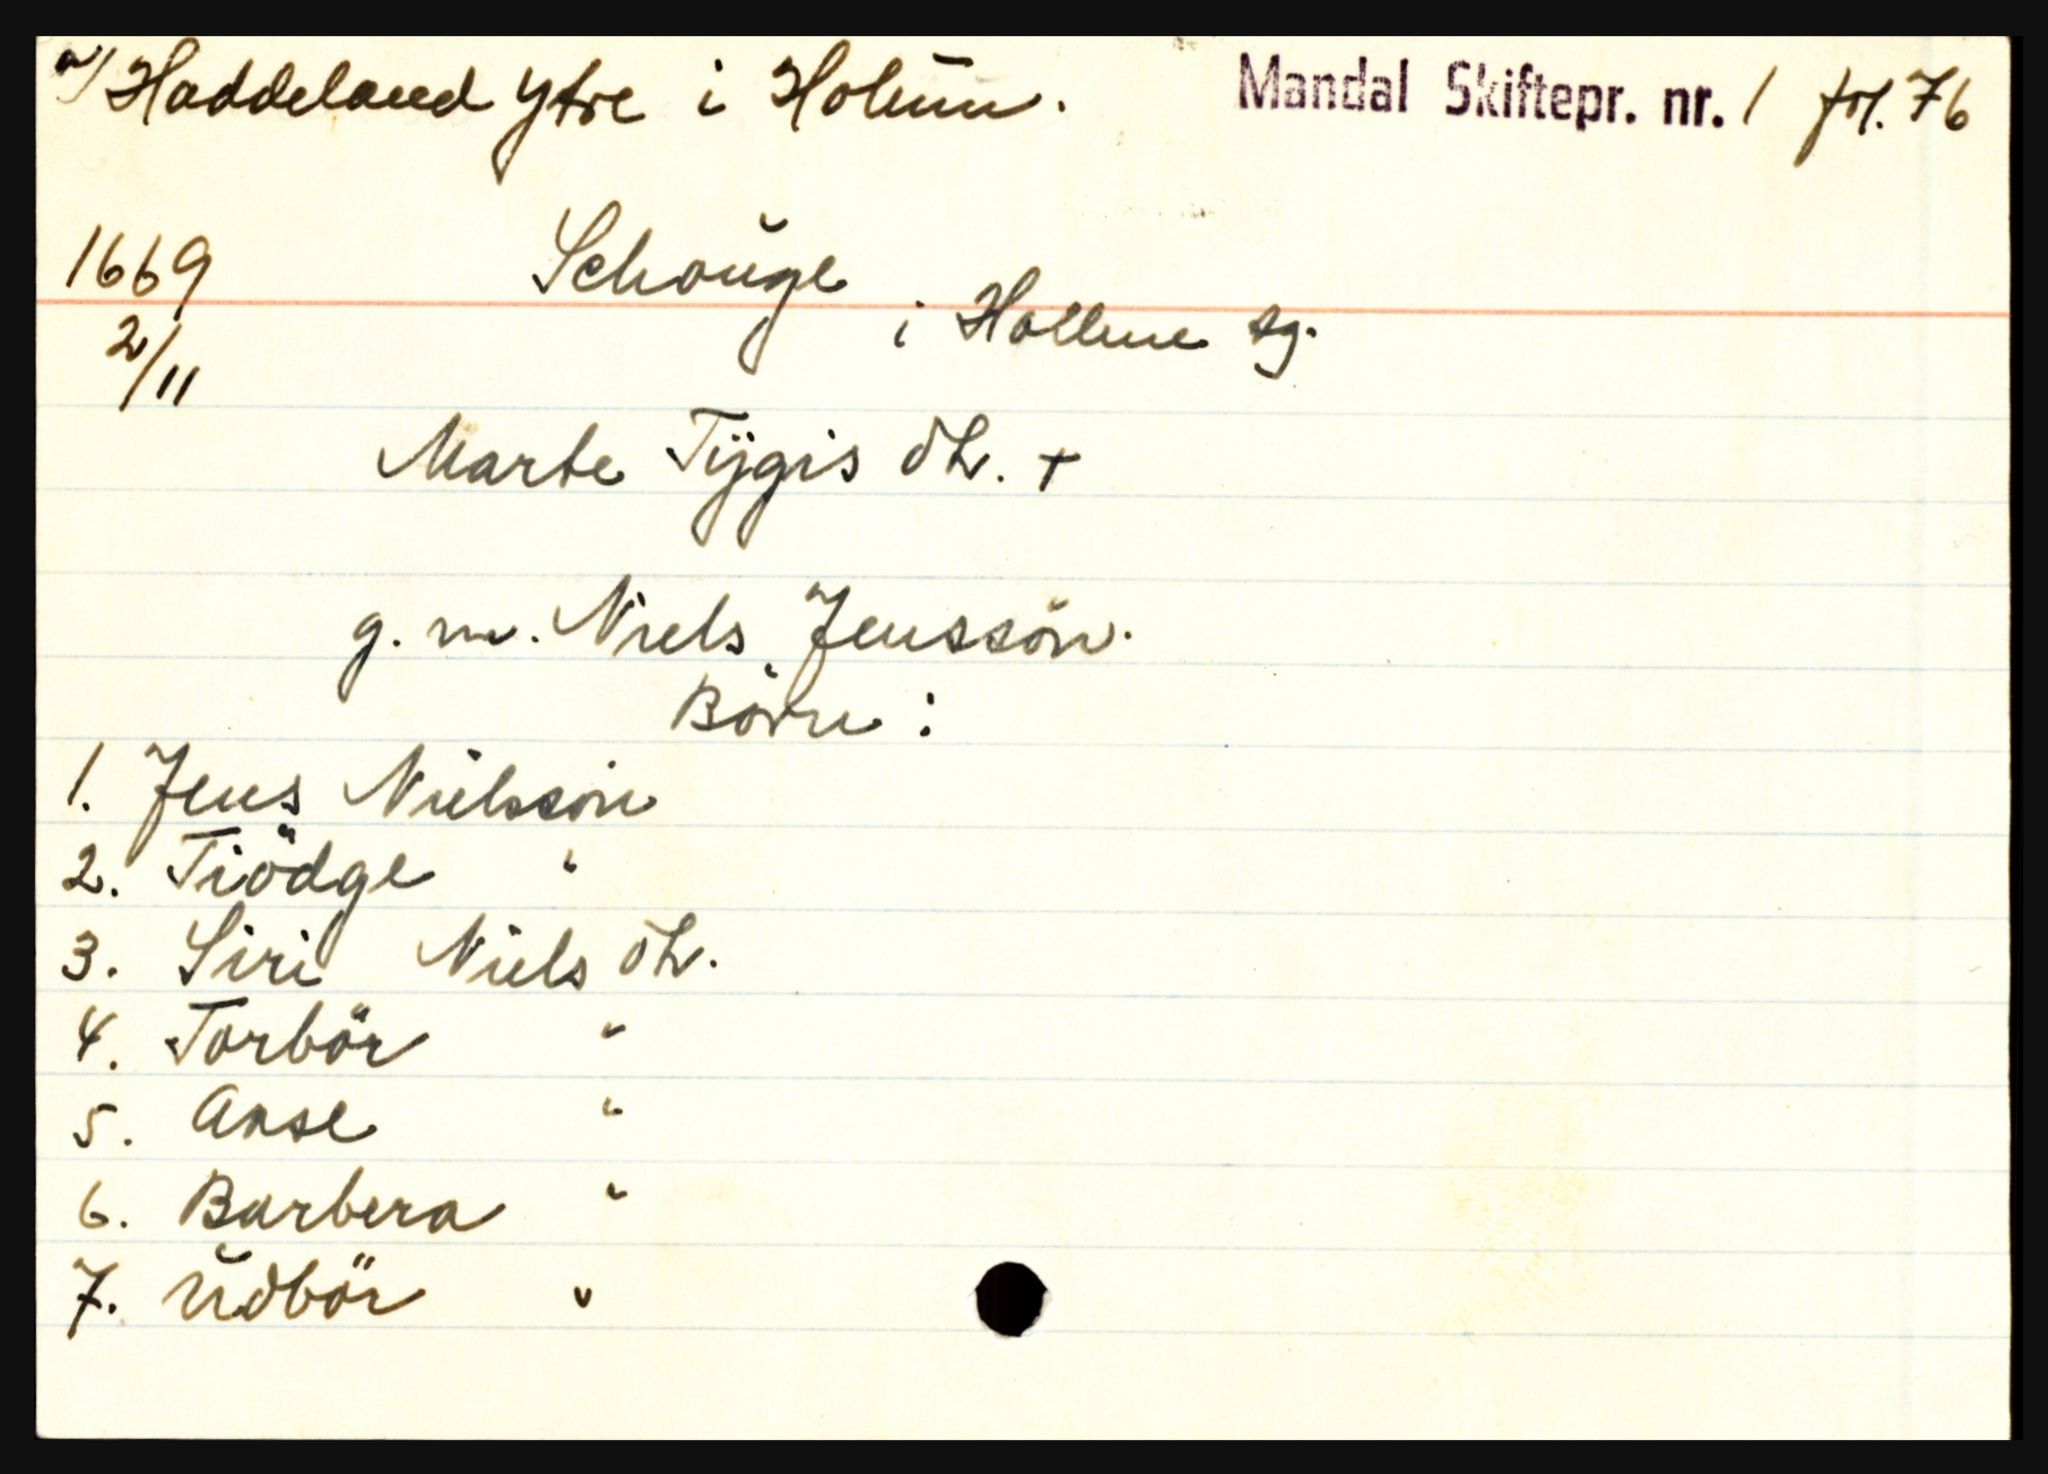 a/ Haddeland ytre i Holum.
Mandal Skiftepr. nr. 1 fol. 76
1669
2/11
Schouge
i Hollme sg.
Marte Tÿgis dtr. +
g. m. Niels Jenssön.
Börn:
1. Jens Nielssön
2. Tiödge "
3. Siri Niels dtr.
4. Torbör "
5. Anse "
6. Barbera "
7. Udbör "